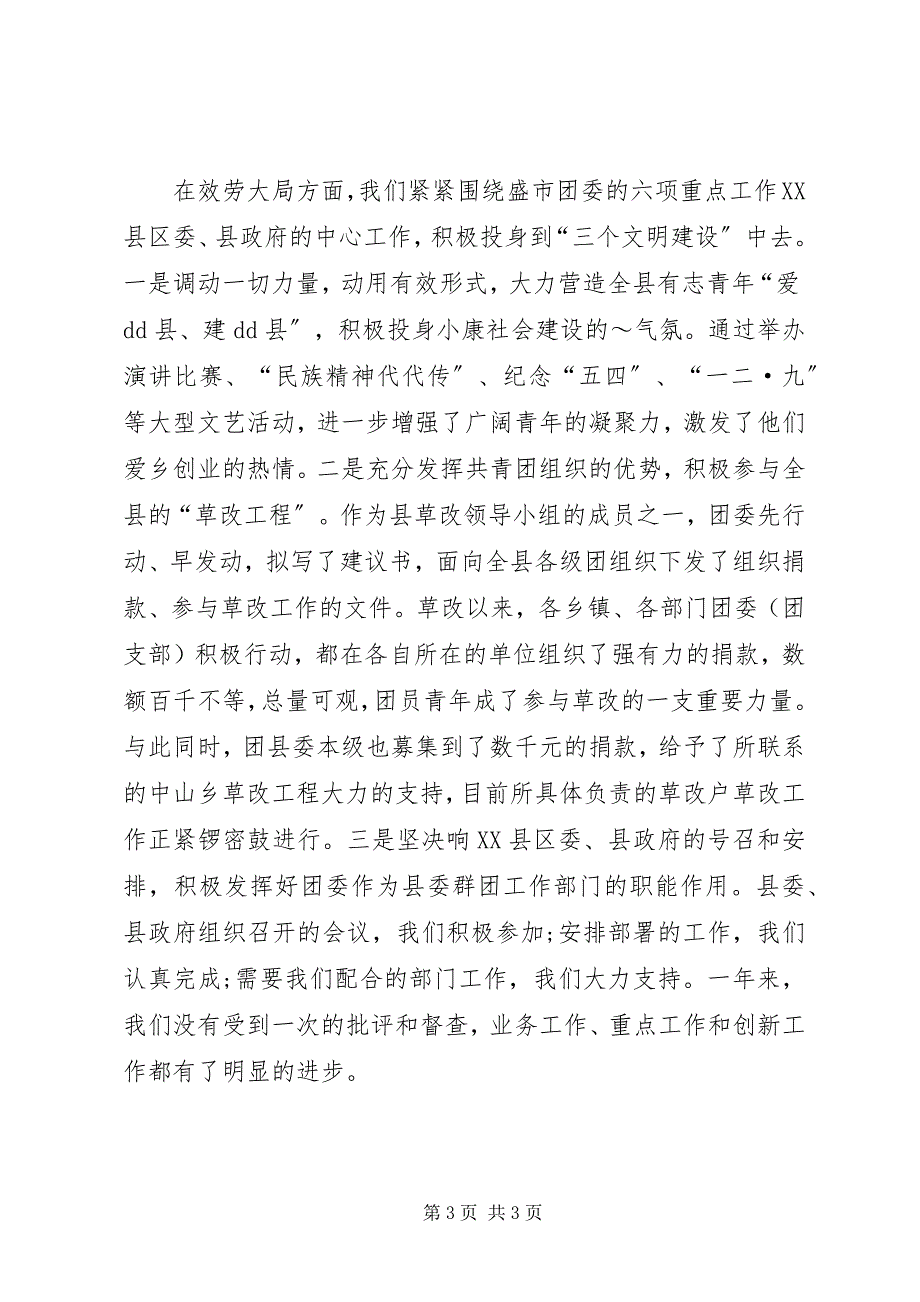 在效劳大局方面，我们紧紧围绕盛市团委的六项重点工作XX
县区委、县政府的中心工作，积极投身到“三个文明建设〞中去。
一是调动一切力量，动用有效形式，大力营造全县有志青年“爱
dd县、建dd县〞，积极投身小康社会建设的～气氛。通过举办
演讲比赛、“民族精神代代传〞、纪念“五四〞、“一二·九〞
等大型文艺活动，进一步增强了广阔青年的凝聚力，激发了他们
爱乡创业的热情。二是充分发挥共青团组织的优势，积极参与全
县的“草改工程〞。作为县草改领导小组的成员之一，团委先行
动、早发动，拟写了建议书，面向全县各级团组织下发了组织捐
款、参与草改工作的文件。草改以来，各乡镇、各部门团委（团
支部）积极行动，都在各自所在的单位组织了强有力的捐款，数
额百千不等，总量可观，团员青年成了参与草改的一支重要力量。
与此同时，团县委本级也募集到了数千元的捐款，给予了所联系
的中山乡草改工程大力的支持，目前所具体负责的草改户草改工
作正紧锣密鼓进行。三是坚决响XX县区委、县政府的号召和安
排，积极发挥好团委作为县委群团工作部门的职能作用。县委、
县政府组织召开的会议，我们积极参加;安排部署的工作，我们
认真完成;需要我们配合的部门工作，我们大力支持。一年来，
我们没有受到一次的批评和督查，业务工作、重点工作和创新工
作都有了明显的进步。
第3页 共3页